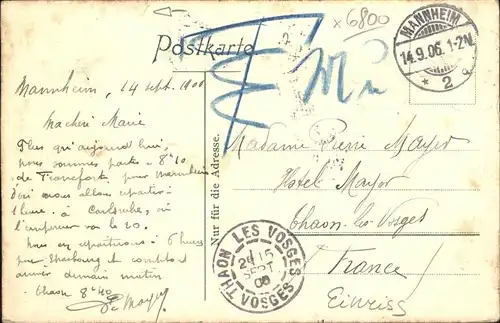 x 6800
Postkarte
MANNHEIM
14.9.06. 1-2N.
* 2 a
Mannheim, 14 Sept. 1906
Ma chère Marie
Plus qu'aujourd'hui,
nous sommes partis à 8h10
de Francfort pour Mannheim
d'où nous allons repartir
1 heure à Carlsruhe, où
l'on
Nous en repartirons à 6 heures
pour Strasbourg et comptons
arriver demain matin
Thaon 8h40
P. Mayer
Nur für die Adresse.
Madame Pierre Mayer
Hotel Mayer
Thaon-les-Vosges
France
THAON LES VOSGES
15
SEPT
06
VOSGES